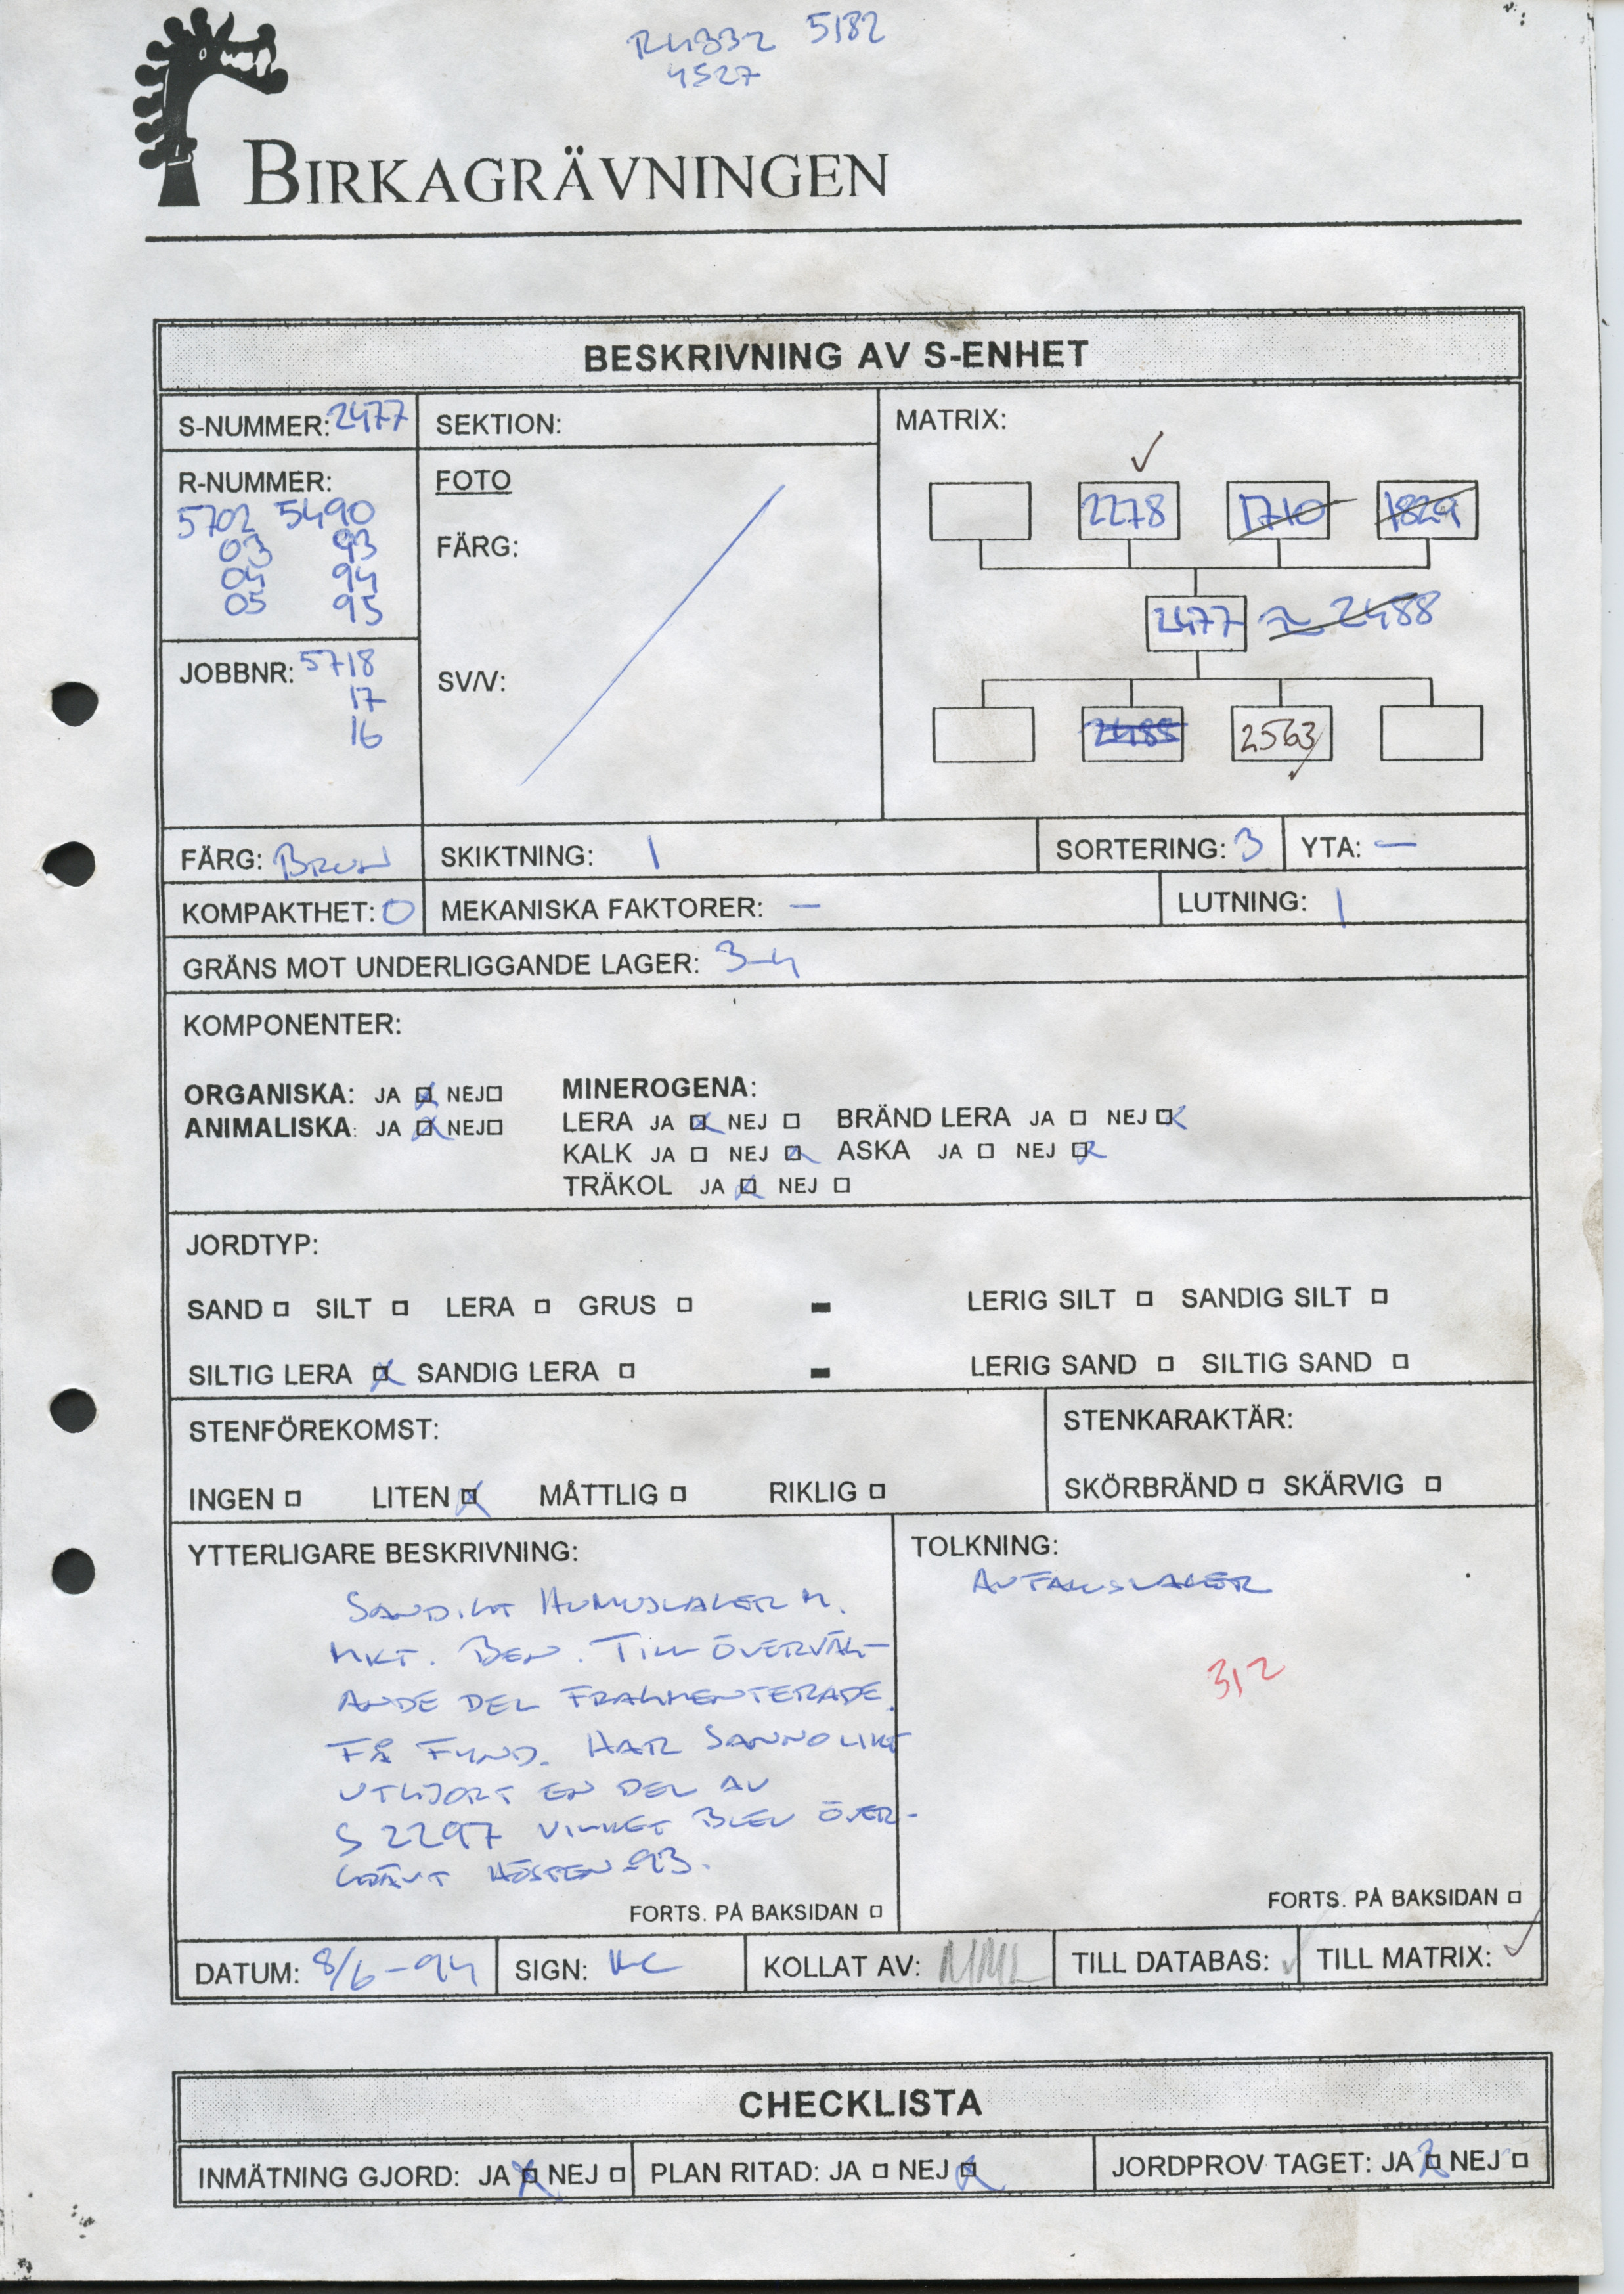 R4332 5182
4527
BIRKAGRÄVNINGEN
BESKRIVNING AV S-ENHET
S-NUMMER: 2477
SEKTION:
MATRIX:
R-NUMMER:
5702 5490
03 93
04 94
05 95
FOTO
FÄRG:
SV/V:
2278 1710 1829
2477 ≈ 2488
2488 2563
JOBBNR: 5718
17
16
FÄRG: BRUN
SKIKTNING: 1
SORTERING: 3
YTA: —
KOMPAKTHET: 0
MEKANISKA FAKTORER: —
LUTNING: 1
GRÄNS MOT UNDERLIGGANDE LAGER: 3-4
KOMPONENTER:
ORGANISKA: JA ☒ NEJ ☐
ANIMALISKA: JA ☒ NEJ ☐
MINEROGENA:
LERA JA ☒ NEJ ☐ BRÄND LERA JA ☐ NEJ ☒
KALK JA ☐ NEJ ☒ ASKA JA ☐ NEJ ☒
TRÄKOL JA ☒ NEJ ☐
JORDTYP:
SAND ☐ SILT ☐ LERA ☐ GRUS ☐ - LERIG SILT ☐ SANDIG SILT ☐
SILTIG LERA ☒ SANDIG LERA ☐ - LERIG SAND ☐ SILTIG SAND ☐
STENFÖREKOMST:
INGEN ☐ LITEN ☒ MÅTTLIG ☐ RIKLIG ☐
STENKARAKTÄR:
SKÖRBRÄND ☐ SKÄRVIG ☐
YTTERLIGARE BESKRIVNING:
SANDIGT HUMUSLAGER M.
MKT. BEN. TILL ÖVERVÄG-
ANDE DEL FRAGMENTERADE.
FÅ FYND. HAR SANNOLIKT
UTGJORT EN DEL AV
S 2297 VILKET BLEV ÖVER-
GRÄVT HÖSTEN -93.
FORTS. PÅ BAKSIDAN ☐
TOLKNING:
AVFALLSLAGER
312
FORTS. PÅ BAKSIDAN ☐
DATUM: 8/6-94
SIGN:
KOLLAT AV:
TILL DATABAS: ✓
TILL MATRIX: ✓
CHECKLISTA
INMÄTNING GJORD: JA ☒ NEJ ☐
PLAN RITAD: JA ☐ NEJ ☒
JORDPROV TAGET: JA ☒ NEJ ☐